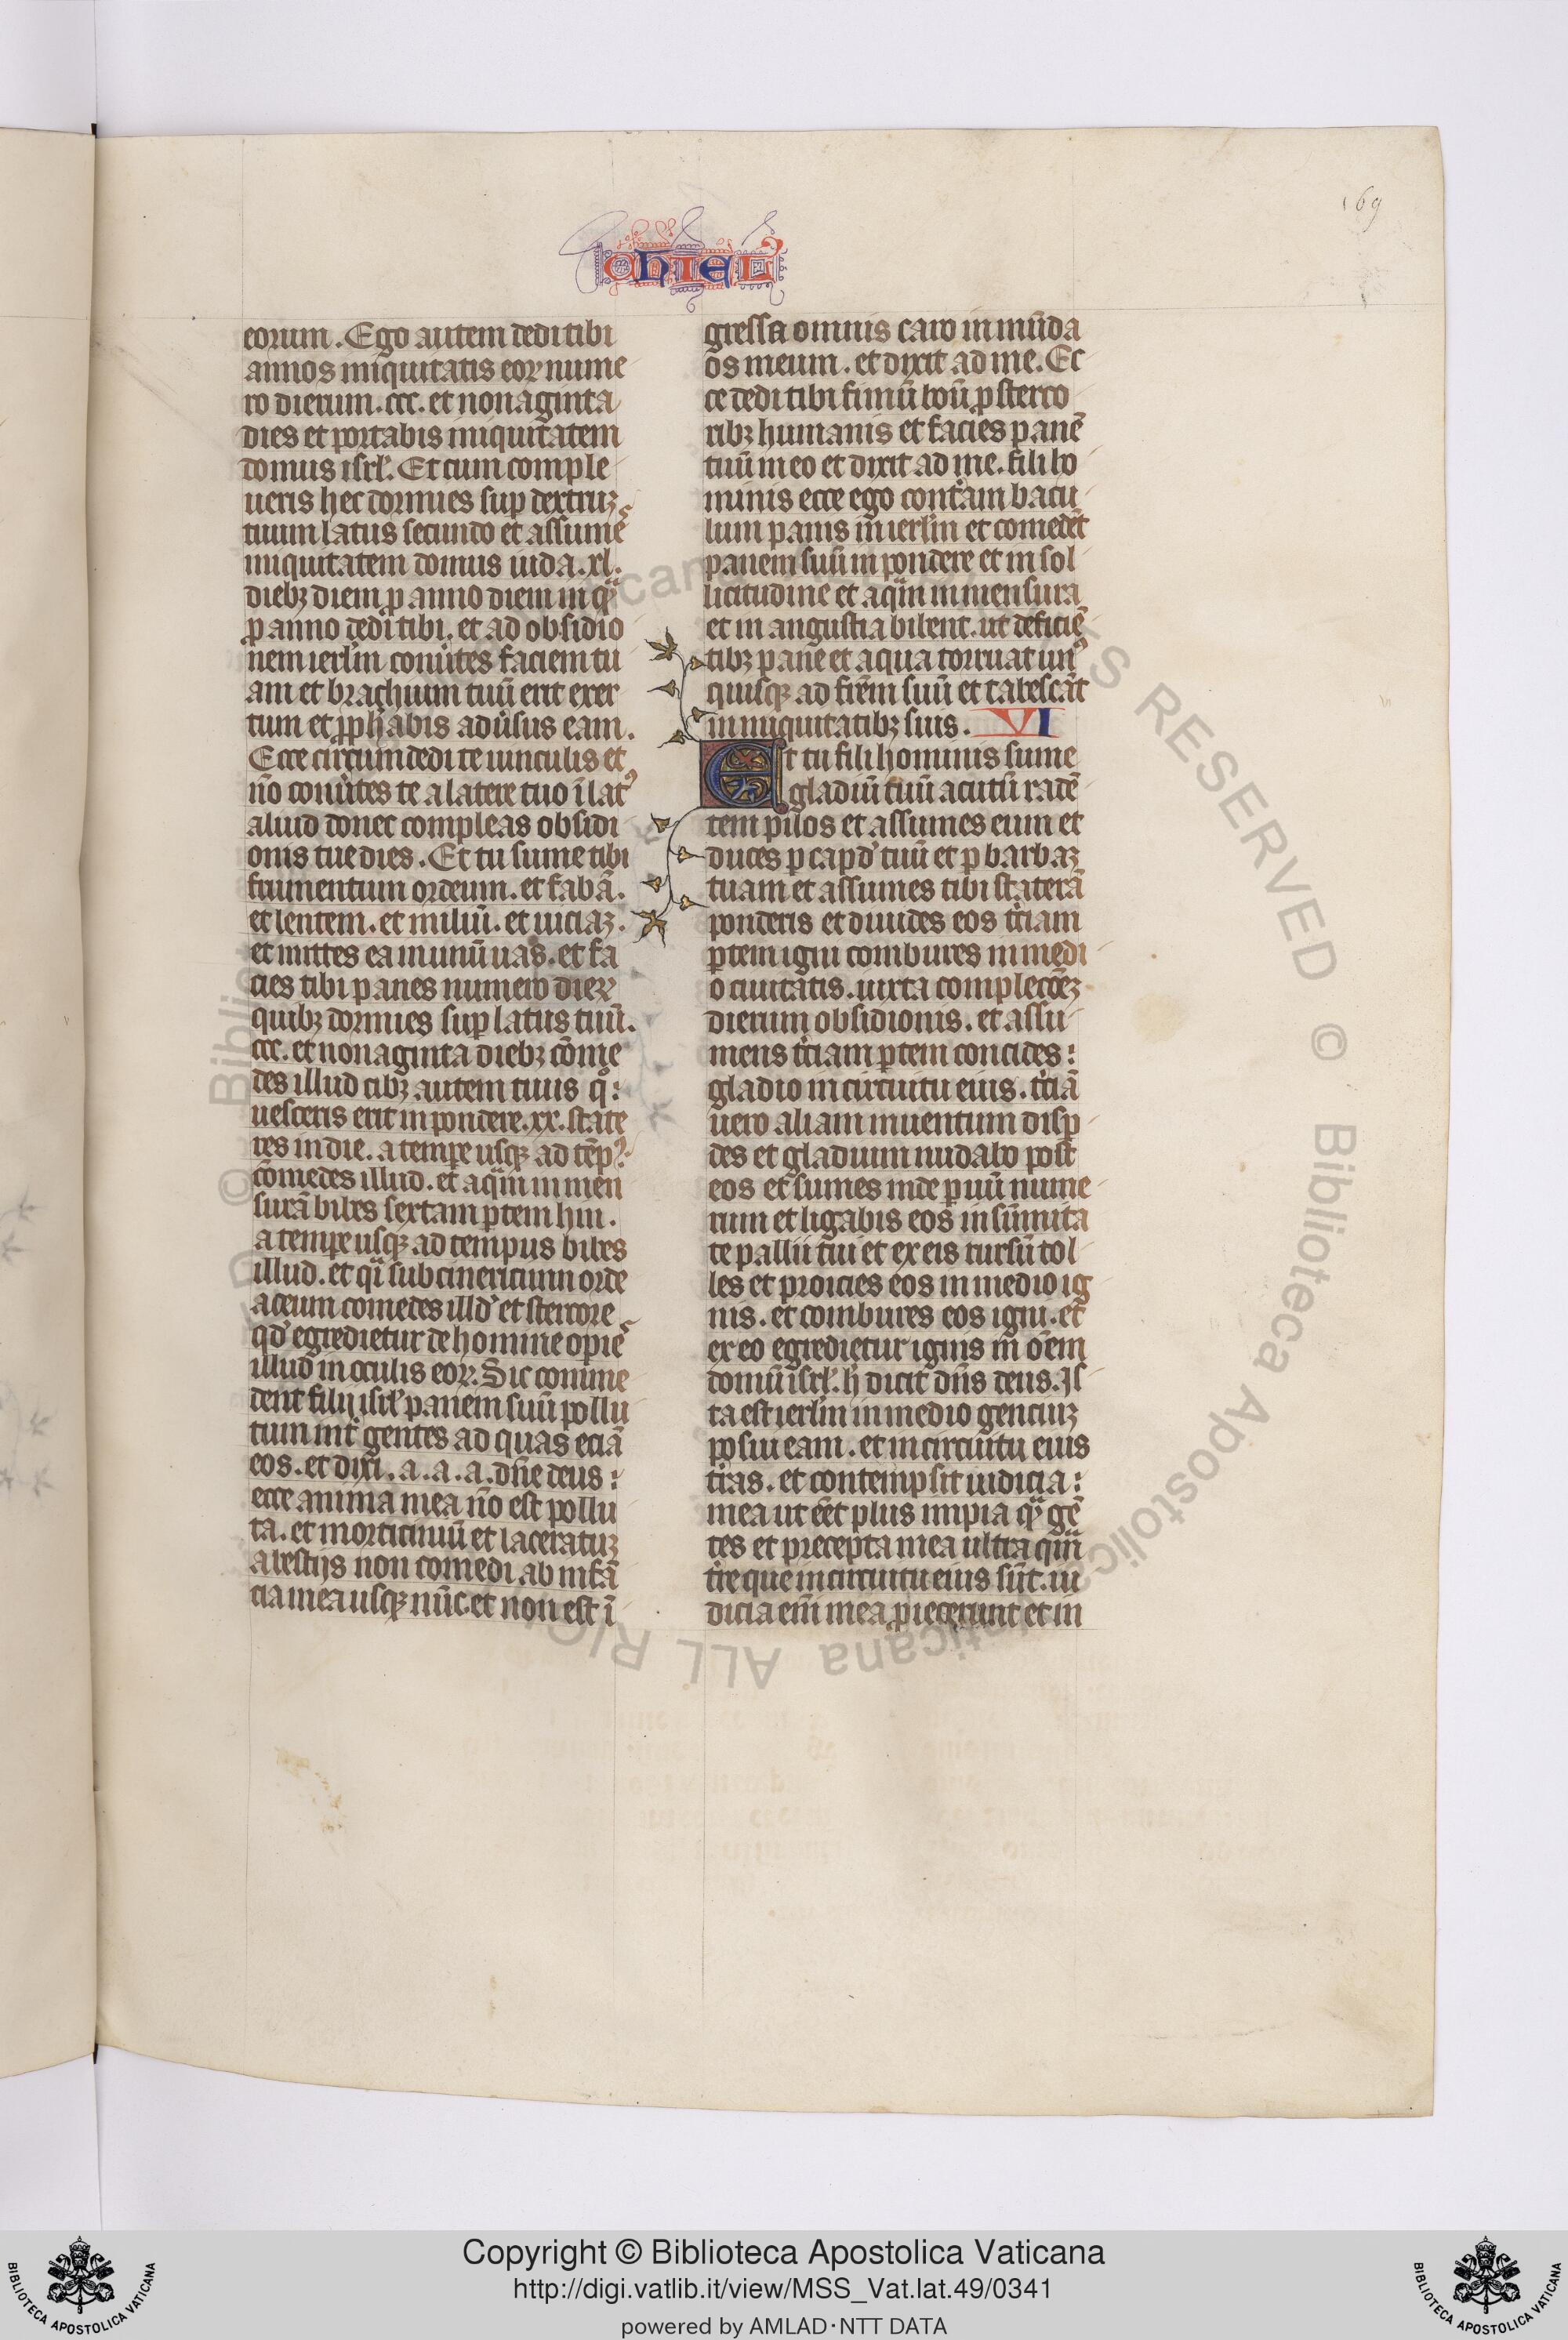 169
CHIEL
eorum. Ego autem dedi tibi
annos iniquitatis eoꝝ nume
ro dierum. ccc. et nonaginta
dies et portabis iniquitatem
domus isrł. Et cum comple
ueris hec dormies suꝑ dextruꝫ
tuum latus secundo et assumes
iniquitatem domus iuda. xl.
diebꝫ diem ꝓ anno diem inqͣꝫ
ꝓ anno dedi tibi. et ad obsidio
nem ierlm̄ conu̾tes faciem tu
am et brachium tuū erit exer
tum et ꝓph̾abis adu̾sus eam.
Ecce circumdedi te uinculis et
nō conu̾tes te a latere tuo ī latꝰ
aliud donec compleas obsidi
onis tue dies. Et tu sume tibi
frumentum ordeum. et fabā.
et lentem. et miliū. et uiciaꝫ.
et mittes ea in unū uas. et fa
cies tibi panes numero dieꝝ
quibꝫ dormies suꝑ latus tuū.
ccc. et nonaginta diebꝫ cōme
des illud cibꝫ autem tuus qͦ:
uesceris erit in pondere. xx. state
res in die. a tempe usqꝫ ad tēpꝰ:
cōmedes illud. et aqͣm in men
surā bibes sextam ꝑtem hin.
a tempe usqꝫ ad tempus bibes
illud. et qͣi subcinericium orde
aceum comedes illd̾ et stercore
qd̾ egredietur de homine opies
illud in oculis eoꝝ. Sic comme
dent filij isrł panem suū pollu
tum int̾ gentes ad quas eciā
eos. et dixi. a. a. a. dn̄e deus:
ecce anima mea nō est pollu
ta. et morticinuū et laceratuꝫ
a bestijs non comedi ab infā
cia mea usqꝫ nūc. et non est ī
gressa omnis caro inmūda
os meum. et dixit ad me. Ec
ce dedi tibi fimū boū ꝓ sterco
ribꝫ humanis et facies panē
tuū in eo et dixit ad me. fili ho
minis ecce ego cont̾am bacu
lum panis in ierlm̄ et comedēt
panem suū in pondere et in sol
licitudine et aqͣm in mensura
et in angustia bibent. ut deficiē
tibꝫ pane et aqua corruat unꝰ
quisqꝫ ad fr̄em suū et tabescāt
in iniquitatibꝫ suis. VI
Et tu fili hominis sume
gladiū tuū acutū radē
tem pilos et assumes eum et
duces ꝑ capd̾ tuū et ꝑ barbaꝫ
tuam et assumes tibi staterā
ponderis et diuides eos t̾ciam
ꝑtem igni combures in medi
o ciuitatis. iuxta complecōeꝫ
dierum obsidionis. et assu
mens t̾ciam ꝑtem concides:
gladio in circuitu eius. t̾ciā
uero aliam in uentum disꝑ
des et gladium nudabo post
eos et sumes inde ꝑuū nume
rum et ligabis eos in sūmita
te pallii tui et ex eis rursū tol
les et proicies eos in medio ig
nis. et combures eos igni. et
ex eo egredietur ignis in oēm
domū isrł. h̾ dicit dn̄s deus. Is
ta est ierlm̄ in medio gentiuꝫ
posui eam. et in circuitu eius
t̾ras. et contempsit iudicia:
mea ut eēt plus impia qͣꝫ gē
tes et precepta mea ultra qͣm
t̾re que in circuitu eius sūt. iu
dicia em̄ mea ꝓiecerunt et in
© Biblioteca Apostolica Vaticana ALL RIGHTS RESERVED
Copyright © Biblioteca Apostolica Vaticana
http://digi.vatlib.it/view/MSS_Vat.lat.49/0341
powered by AMLAD·NTT DATA
BIBLIOTECA APOSTOLICA VATICANA
BIBLIOTECA APOSTOLICA VATICANA